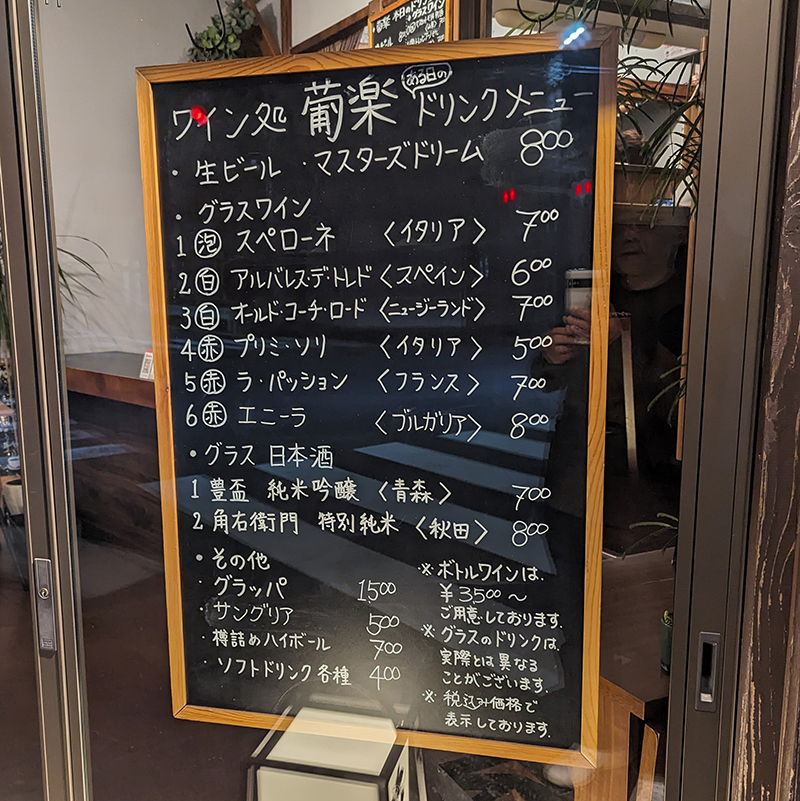 葡楽 本日のドリンク
グラスワイン
ワイン処 葡楽 ある日の ドリンクメニュー
・生ビール ・マスターズドリーム 800
・グラスワイン
1 泡 スペローネ 〈イタリア〉 700
2 白 アルバレス・デ・トレド 〈スペイン〉 600
3 白 オールド・コーチ・ロード 〈ニュージーランド〉 700
4 赤 プリミ・ソリ 〈イタリア〉 500
5 赤 ラ・パッション 〈フランス〉 700
6 赤 エニーラ 〈ブルガリア〉 800
・グラス 日本酒
1 豊盃 純米吟醸 〈青森〉 700
2 角右衛門 特別純米 〈秋田〉 800
・その他
・グラッパ 1500
・サングリア 500
・樽詰めハイボール 700
・ソフトドリンク各種 400
※ボトルワインは、
¥3500〜
ご用意しております。
※グラスのドリンクは、
実際とは異なる
ことがございます。
※税込み価格で
表示しております。